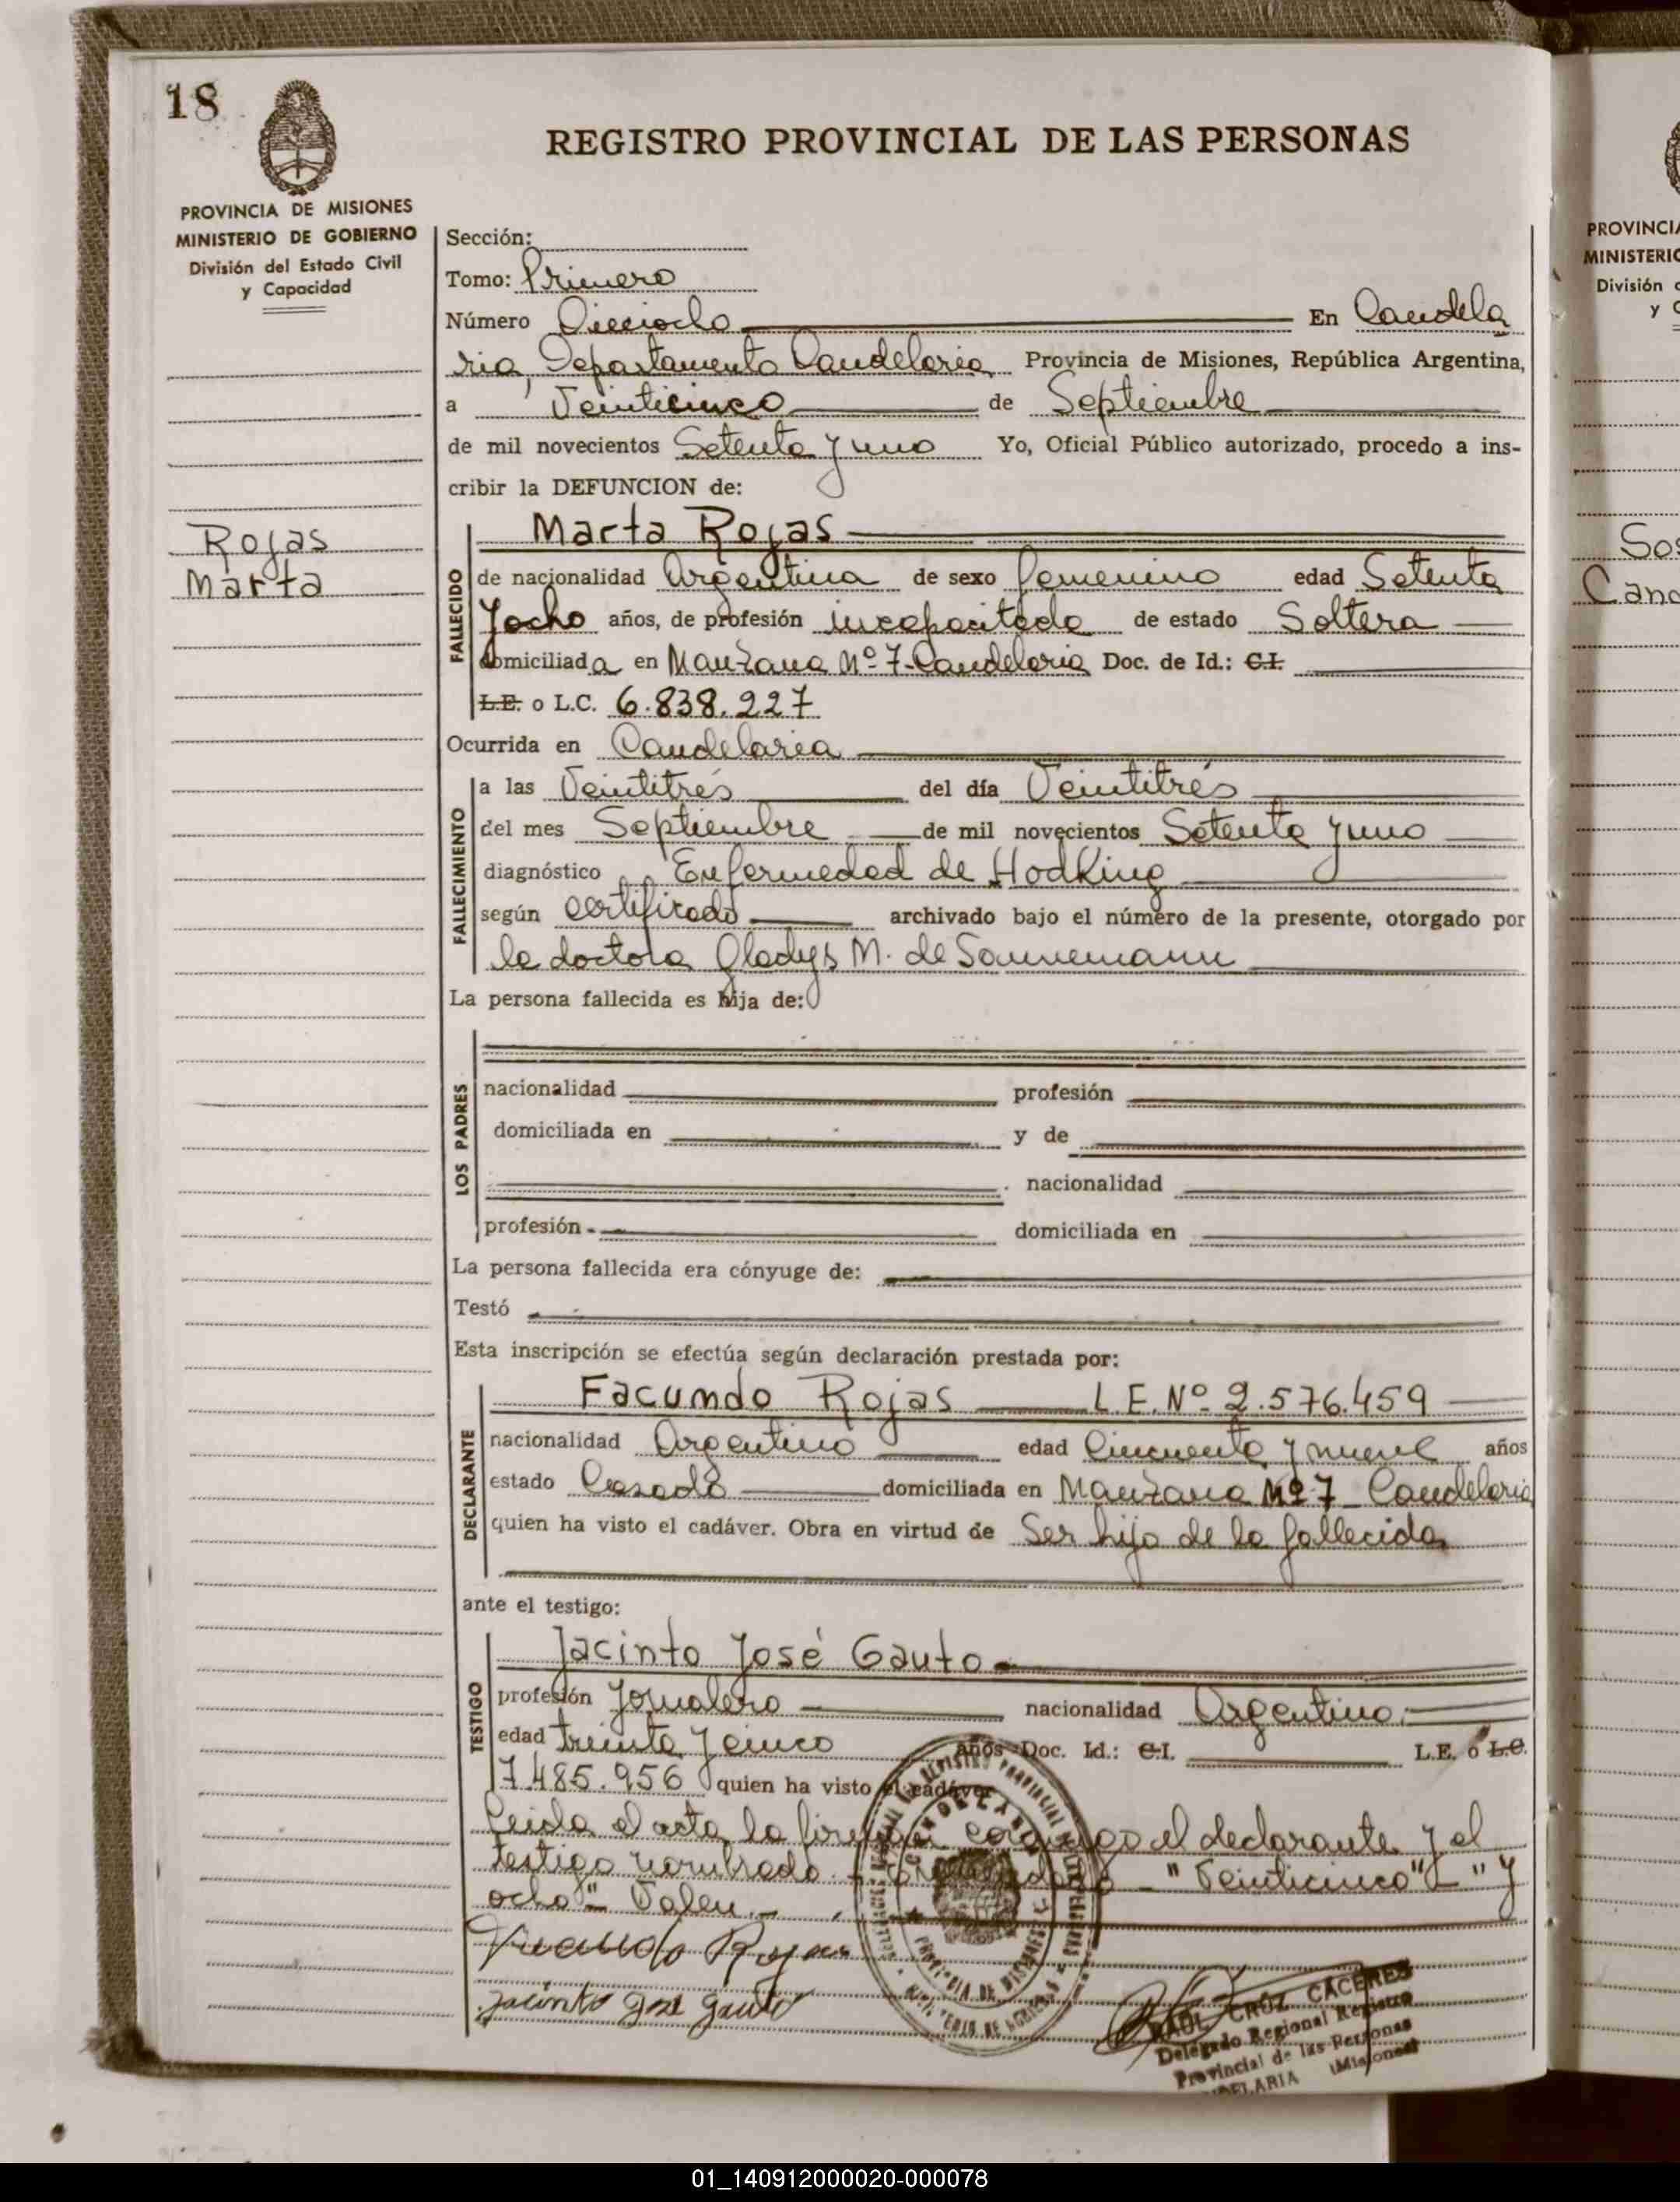 18
REGISTRO PROVINCIAL DE LAS PERSONAS
PROVINCIA DE MISIONES
MINISTERIO DE GOBIERNO
División del Estado Civil
y Capacidad
Sección:
Tomo: Primero
Número Dieciocho En Candela
ria, Departamento Candelaria Provincia de Misiones, República Argentina,
a Veinticinco de Septiembre
de mil novecientos Setenta y uno Yo, Oficial Público autorizado, procedo a ins-
cribir la DEFUNCION de:
Rojas
Marta
FALLECIDO
Marta Rojas
de nacionalidad Argentina de sexo femenino edad Setenta
y ocho años, de profesión incapacitada de estado Soltera
domiciliada en Manzana Nº 7-Candelaria Doc. de Id.: C.I.
L.E. o L.C. 6.838.227
Ocurrida en Candelaria
FALLECIMIENTO
a las Veintitrés del día Veintitrés
del mes Septiembre de mil novecientos Setenta y uno
diagnóstico Enfermedad de Hodking
según certificado archivado bajo el número de la presente, otorgado por
la doctora Gladys M. de Sannemann
La persona fallecida es hija de:
LOS PADRES
nacionalidad profesión
domiciliada en y de
nacionalidad
profesión domiciliada en
La persona fallecida era cónyuge de:
Testó
Esta inscripción se efectúa según declaración prestada por:
DECLARANTE
Facundo Rojas L.E. Nº 2.576.459
nacionalidad Argentino edad Cincuenta y nueve años
estado Casado domiciliada en Manzana Nº 7 Candelaria
quien ha visto el cadáver. Obra en virtud de Ser hijo de la fallecida
ante el testigo:
TESTIGO
Jacinto José Gauto
profesión Jornalero nacionalidad Argentino
edad treinta y cinco años Doc. Id.: C.I. L.E. o L.C.
7.485.956 quien ha visto el cadáver
Leida el acta, la firman conmigo el declarante y el
testigo nombrado. - - "Veinticinco" - "y
ocho" - Valen. -
Facundo Rojas
Jacinto José Gauto
RAUL CRUZ CACERES
Delegado Regional Registro
Provincial de las Personas
(Misiones)
PROVINCIA
MINISTERIO
División
y
Sos
Cand
01_140912000020-000078